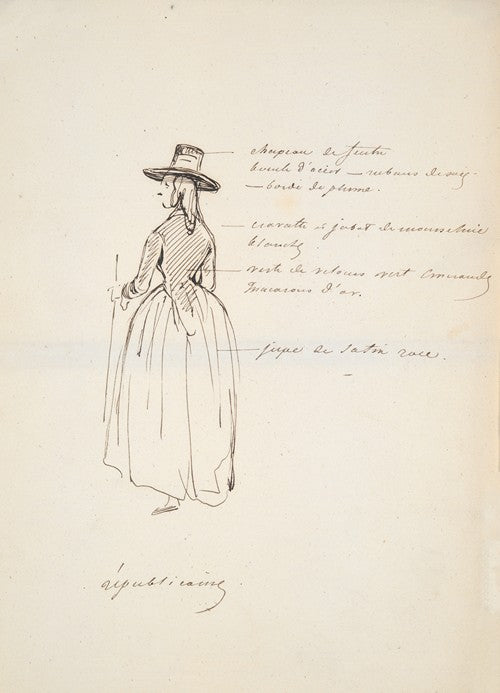 chapeau de feutre
boucle d'acier — rubans de soie
— bordé de plume.
cravatte à jabot de mousseline
blanche
veste de velours vert émeraude
macarons d'or.
jupe de satin rose.
républicaine